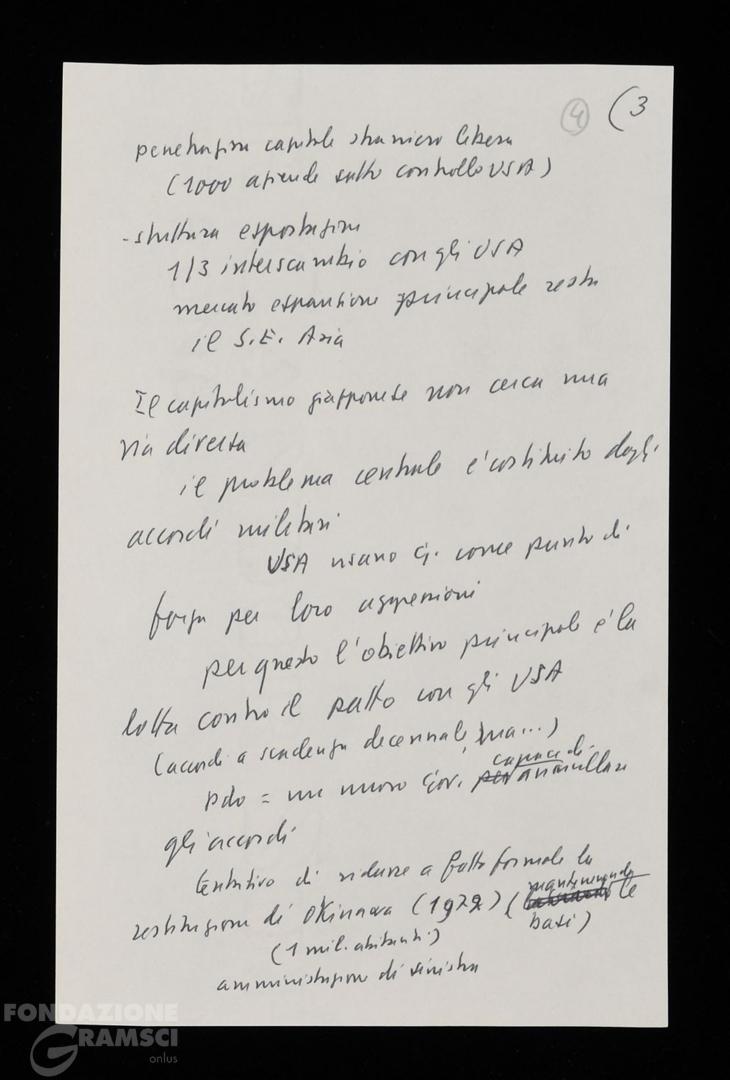 4 (3
penetrazione capitale straniero libera
(1000 aziende sotto controllo USA)
- struttura esportazioni
1/3 interscambio con gli USA
mercato espansione principale resta
il S.E. Asia
Il capitalismo giapponese non cerca una
via diversa
il problema centrale è costituito dagli
accordi militari
USA usano G. come punto di
forza per loro aggressioni
per questo l'obiettivo principale è la
lotta contro il patto con gli USA
(accordi a scadenza decennale, ma...)
pdo = un nuovo Gov. capace di
per annullare
gli accordi
tentativo di ridurre a fatto formale la
restituzione di Okinawa (1972) (mantenendo le
basi)
(1 mil. abitanti)
amministrazione di sinistra
FONDAZIONE
GRAMSCI
onlus